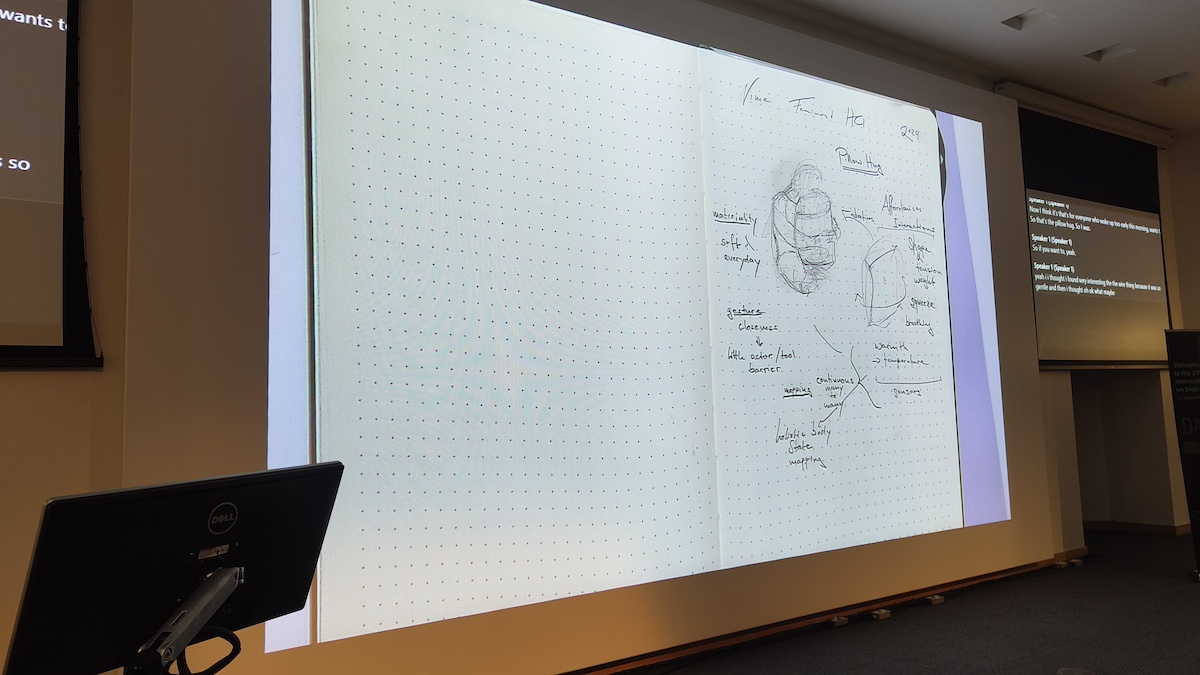 wants to
s so
Nime Feminoid HCI 2024
Pillow Hug
materiality
soft &
everyday
Affordances
Interactions
shape
tension
weight
squeeze
breathing
warmth
→ temperature
sensors
gesture
closeness
little actor/tool
barrier
mapping
continuous
many
to
many
holistic body
state
mapping
DELL
Speaker 1 (Speaker 1)
Now I think it's that's for everyone who woke up too early this morning, wants t
So that's the pillow hug. So I was.
Speaker 1 (Speaker 1)
So if you want to, yeah.
Speaker 1 (Speaker 1)
yeah i i thought i found very interesting the the wire thing because it was so
gentle and then i thought oh ok what maybe
Welcome
to the
on Digi